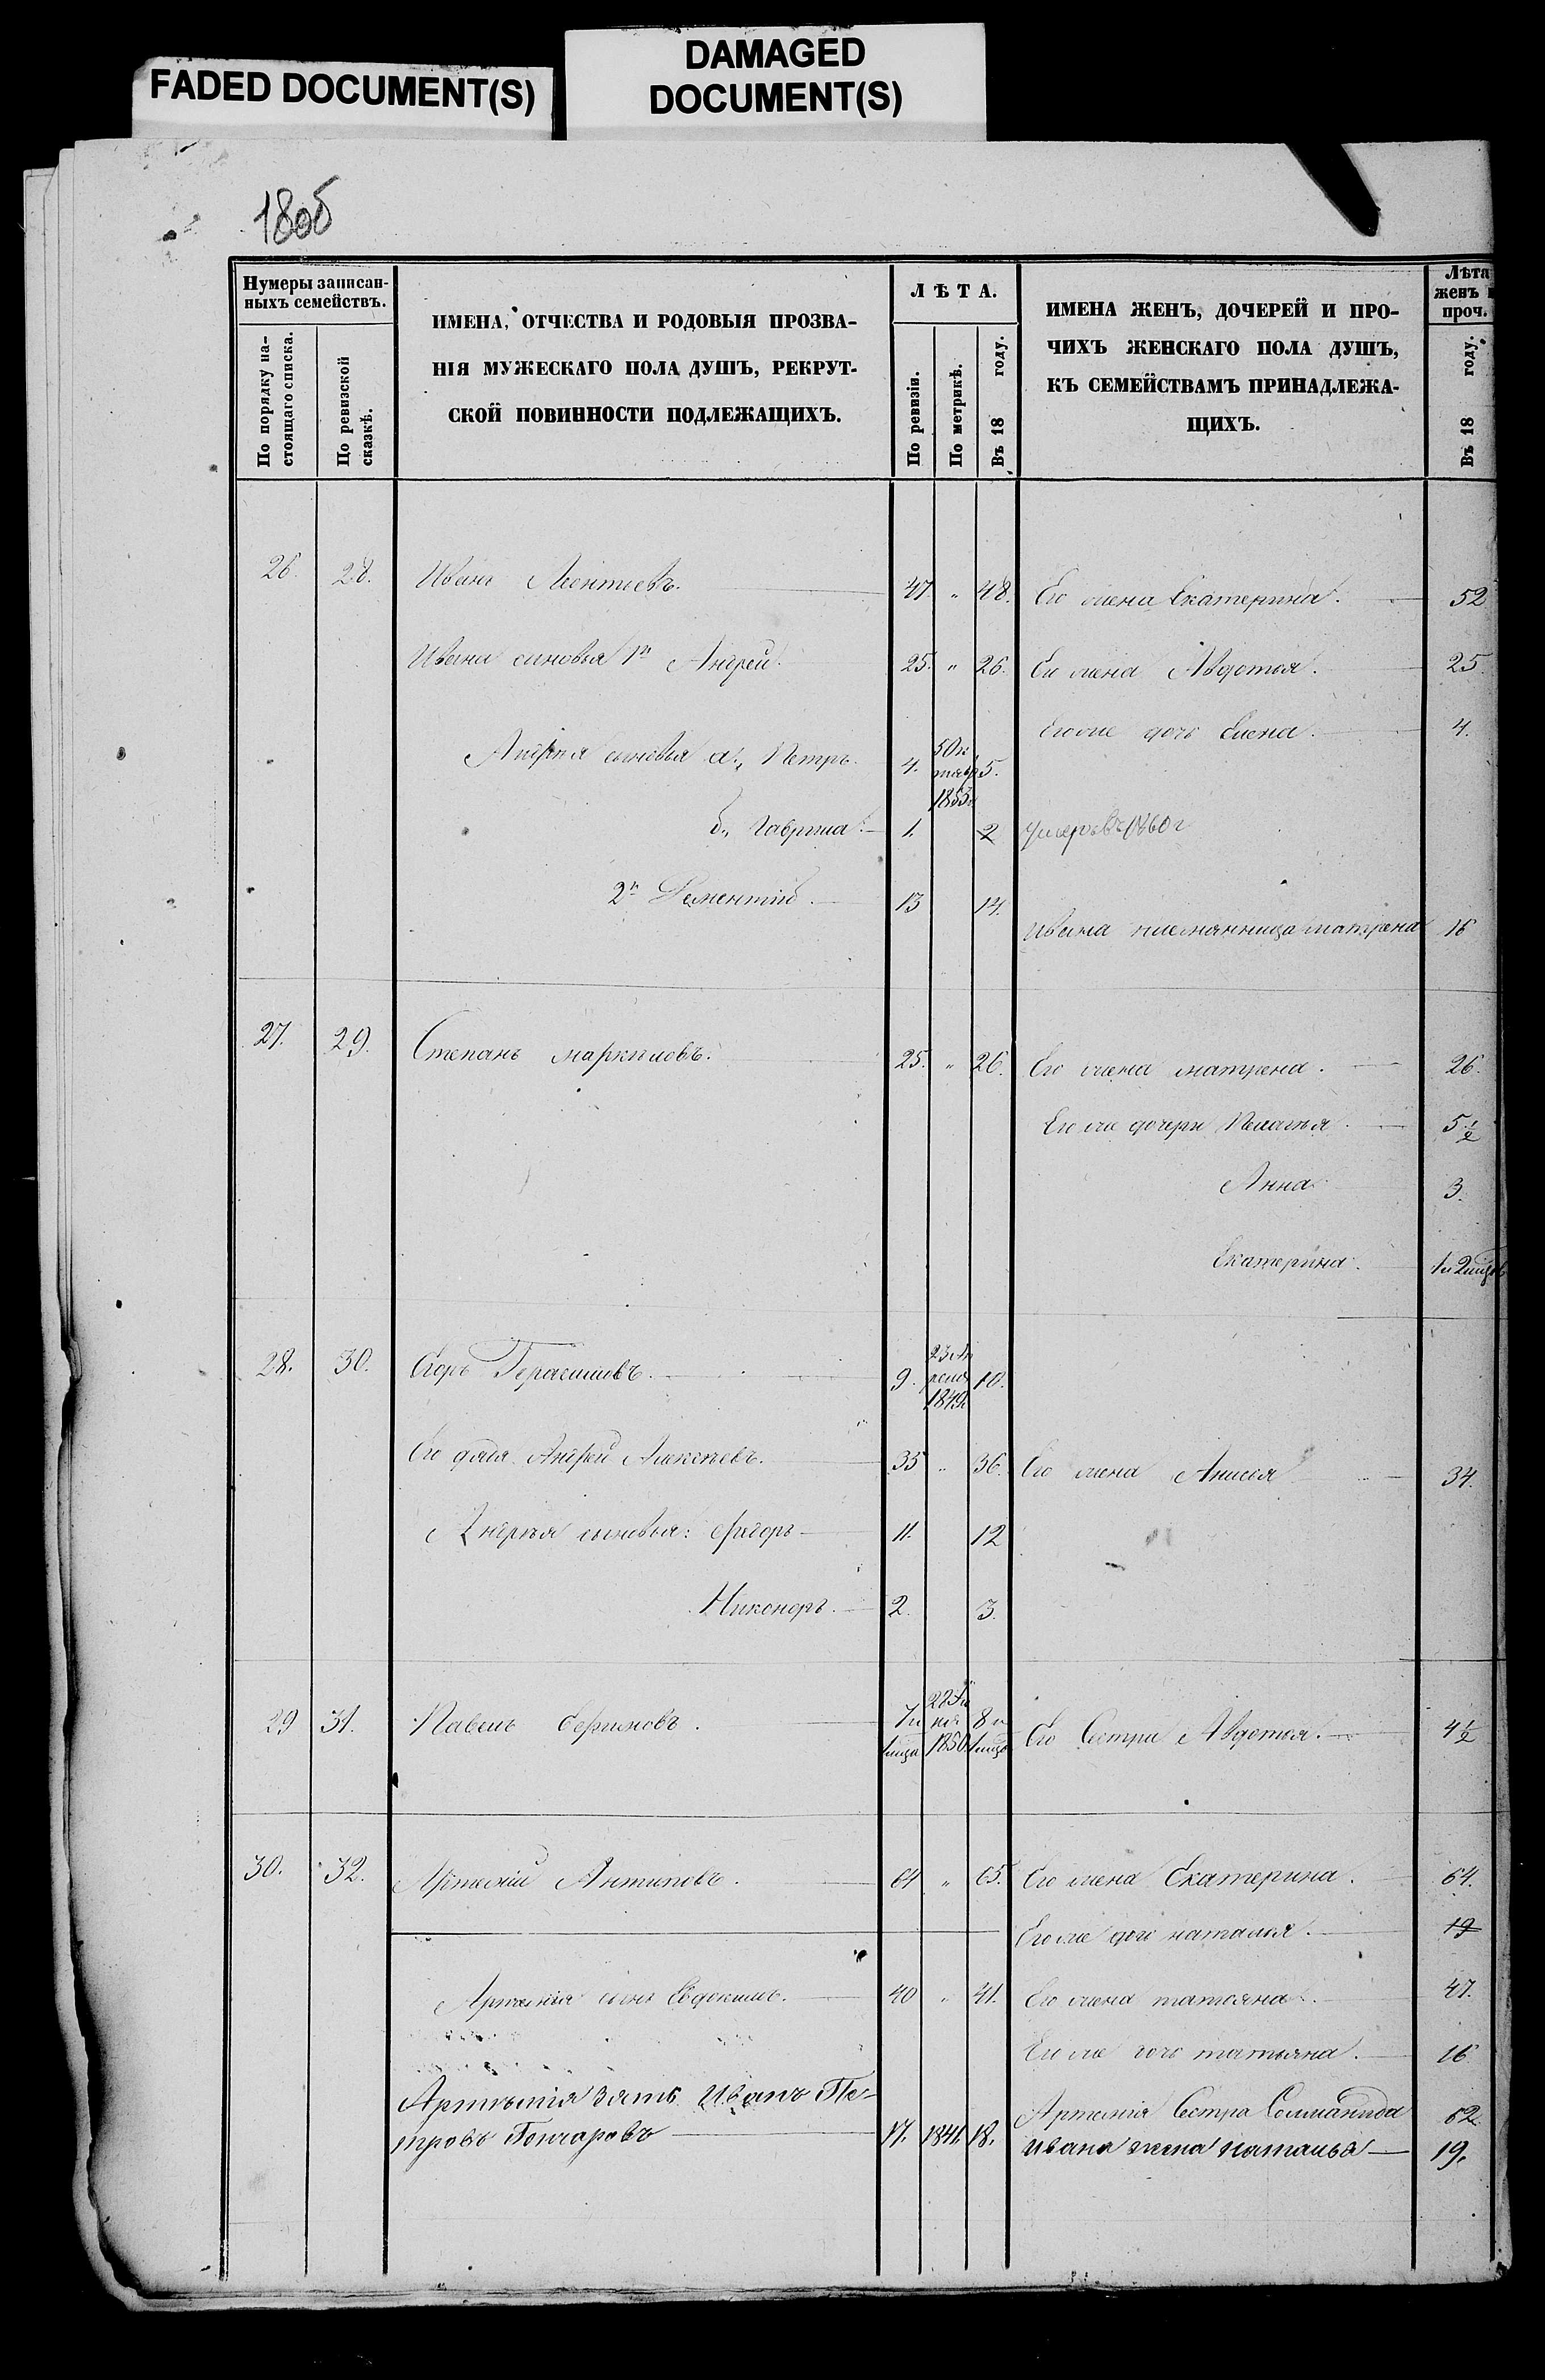 FADED DOCUMENT(S)
DAMAGED
DOCUMENT(S)
180б
Нумеры записан-
ныхъ семействъ.
По порядку на-
стоящаго списка.
По ревизской
сказкѣ.
ИМЕНА, ОТЧЕСТВА И РОДОВЫЯ ПРОЗВА-
НІЯ МУЖЕСКАГО ПОЛА ДУШЪ, РЕКРУТ-
СКОЙ ПОВИННОСТИ ПОДЛЕЖАЩИХЪ.
ЛѢТА.
По ревизіи.
По метрикѣ.
Въ 18 году.
ИМЕНА ЖЕНЪ, ДОЧЕРЕЙ И ПРО-
ЧИХЪ ЖЕНСКАГО ПОЛА ДУШЪ,
КЪ СЕМЕЙСТВАМЪ ПРИНАДЛЕЖА-
ЩИХЪ.
Лѣта
женъ и
проч.
Въ 18 году.
26. 28. Иванъ Леонтьевъ. 47. " 48. Его жена Екатерина. 52
Ивана сыновья 1й Андрей. 25. " 26. Его жена Авдотья. 25.
Его же дочь Елена. 4.
Андрея сыновья а., Петръ. 4. 1853 5.
б., Гаврила. 1. 2 умеръ въ 1860 г
2й Дементій. 13 14.
Ивана племянница Матрена 16
27. 29. Степанъ Маркиловъ. 25. " 26. Его жена Матрена. 26.
Его же дочери Пелагея. 5 1/2
Анна 3.
Екатерина. 1 и 2 мѣц
28. 30. Егоръ Герасимовъ. 9. 23 Ап
реля
1849 10.
Его дядя Андрей Алексѣевъ. 35 " 36. Его жена Анисья 34.
Андрея сыновья: Федоръ 11. 12
Никоноръ. 2. 3.
29 31. Павелъ Ефимовъ. 7 и
1 мца 1850 8 и
1 мца Его Сестра Авдотья. 4 1/2
30. 32. Артемій Антиповъ. 64 " 65. Его жена Екатерина. 64.
Его же дочь Наталья. 19
Артемія сынъ Евдокимъ. 40 " 41. Его жена Татьяна. 47.
Его же дочь Татьяна. 16
Артемія Сестра Соломанида 62
Артемія зять Иванъ Пе-
тровъ Гончаровъ 17. 1841. 18. Ивана жена Наталья 19.